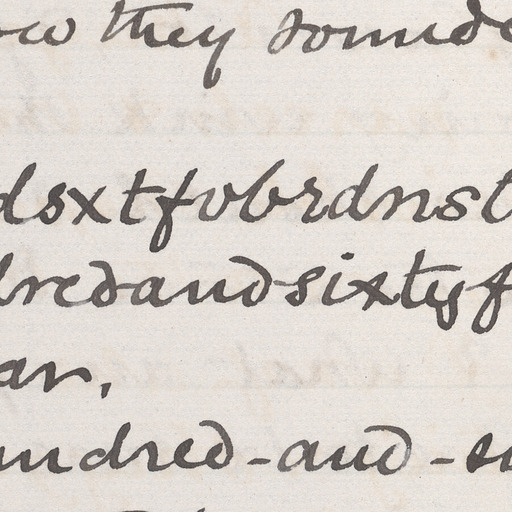 ow they sounde
dsxtfvbrdnst
dredandsixtyf
ar,
undred-and-si